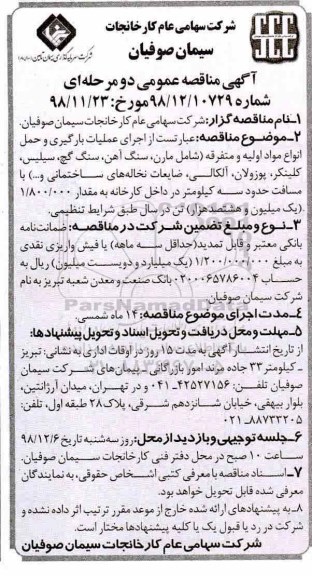 شرکت سهامی عام کارخانجات
سیمان صوفیان
SCC
آگهی مناقصه عمومی دو مرحله‌ای
شماره ۹۸/۱۲/۱۰۷۲۹ مورخ: ۹۸/۱۱/۲۳
۱ـ نام مناقصه گزار: شرکت سهامی عام کارخانجات سیمان صوفیان.
۲ـ موضوع مناقصه: عبارتست از اجرای عملیات بارگیری و حمل
انواع مواد اولیه و متفرقه (شامل مارن، سنگ آهن، سنگ گچ، سیلیس،
کلینکر، پوزولان، آلکالی، ضایعات نخاله‌های ساختمانی و...) با
مسافت حدود سه کیلومتر در داخل کارخانه به مقدار ۱/۸۰۰/۰۰۰
(یک میلیون و هشتصدهزار) تن در سال طبق شرایط تنظیمی.
۳ـ نوع و مبلغ تضمین شرکت در مناقصه: ضمانت‌نامه
بانکی معتبر و قابل تمدید (حداقل سه ماهه) یا فیش واریزی نقدی
به مبلغ ۱/۲۰۰/۰۰۰/۰۰۰ (یک میلیارد و دویست میلیون) ریال به
حساب ۰۲۰۰۰۶۵۷۸۶۰۰۴ بانک صنعت و معدن شعبه تبریز به نام
شرکت سیمان صوفیان
۴ـ مدت اجرای موضوع مناقصه: ۱۴ ماه شمسی.
۵ـ مهلت و محل دریافت و تحویل اسناد و تحویل پیشنهادها:
از تاریخ انتشار آگهی به مدت ۱۵ روز در اوقات اداری به نشانی: تبریز
ـ کیلومتر ۳۳ جاده مرند امور بازرگانی ـ پیمان‌های شرکت سیمان
صوفیان تلفن: ۴۲۵۲۷۱۵۶-۰۴۱ و در تهران، میدان آرژانتین،
بلوار بیهقی، خیابان شانزدهم شرقی، پلاک ۲۸ طبقه اول، تلفن:
۸۸۷۳۳۲۰۵-۰۲۱
۶ـ جلسه توجیهی و بازدید از محل: روز سه‌شنبه تاریخ ۹۸/۱۲/۶
ساعت ۱۰ صبح در محل دفتر فنی کارخانجات سیمان صوفیان.
۷ـ اسناد مناقصه با معرفی کتبی اشخاص حقوقی، به نمایندگان
معرفی شده قابل تحویل خواهد بود.
۸ـ به پیشنهادهای ارائه شده خارج از موعد مقرر ترتیب اثر داده نشده و
شرکت در رد یا قبول یک یا کلیه پیشنهادها مختار است.
شرکت سهامی عام کارخانجات سیمان صوفیان